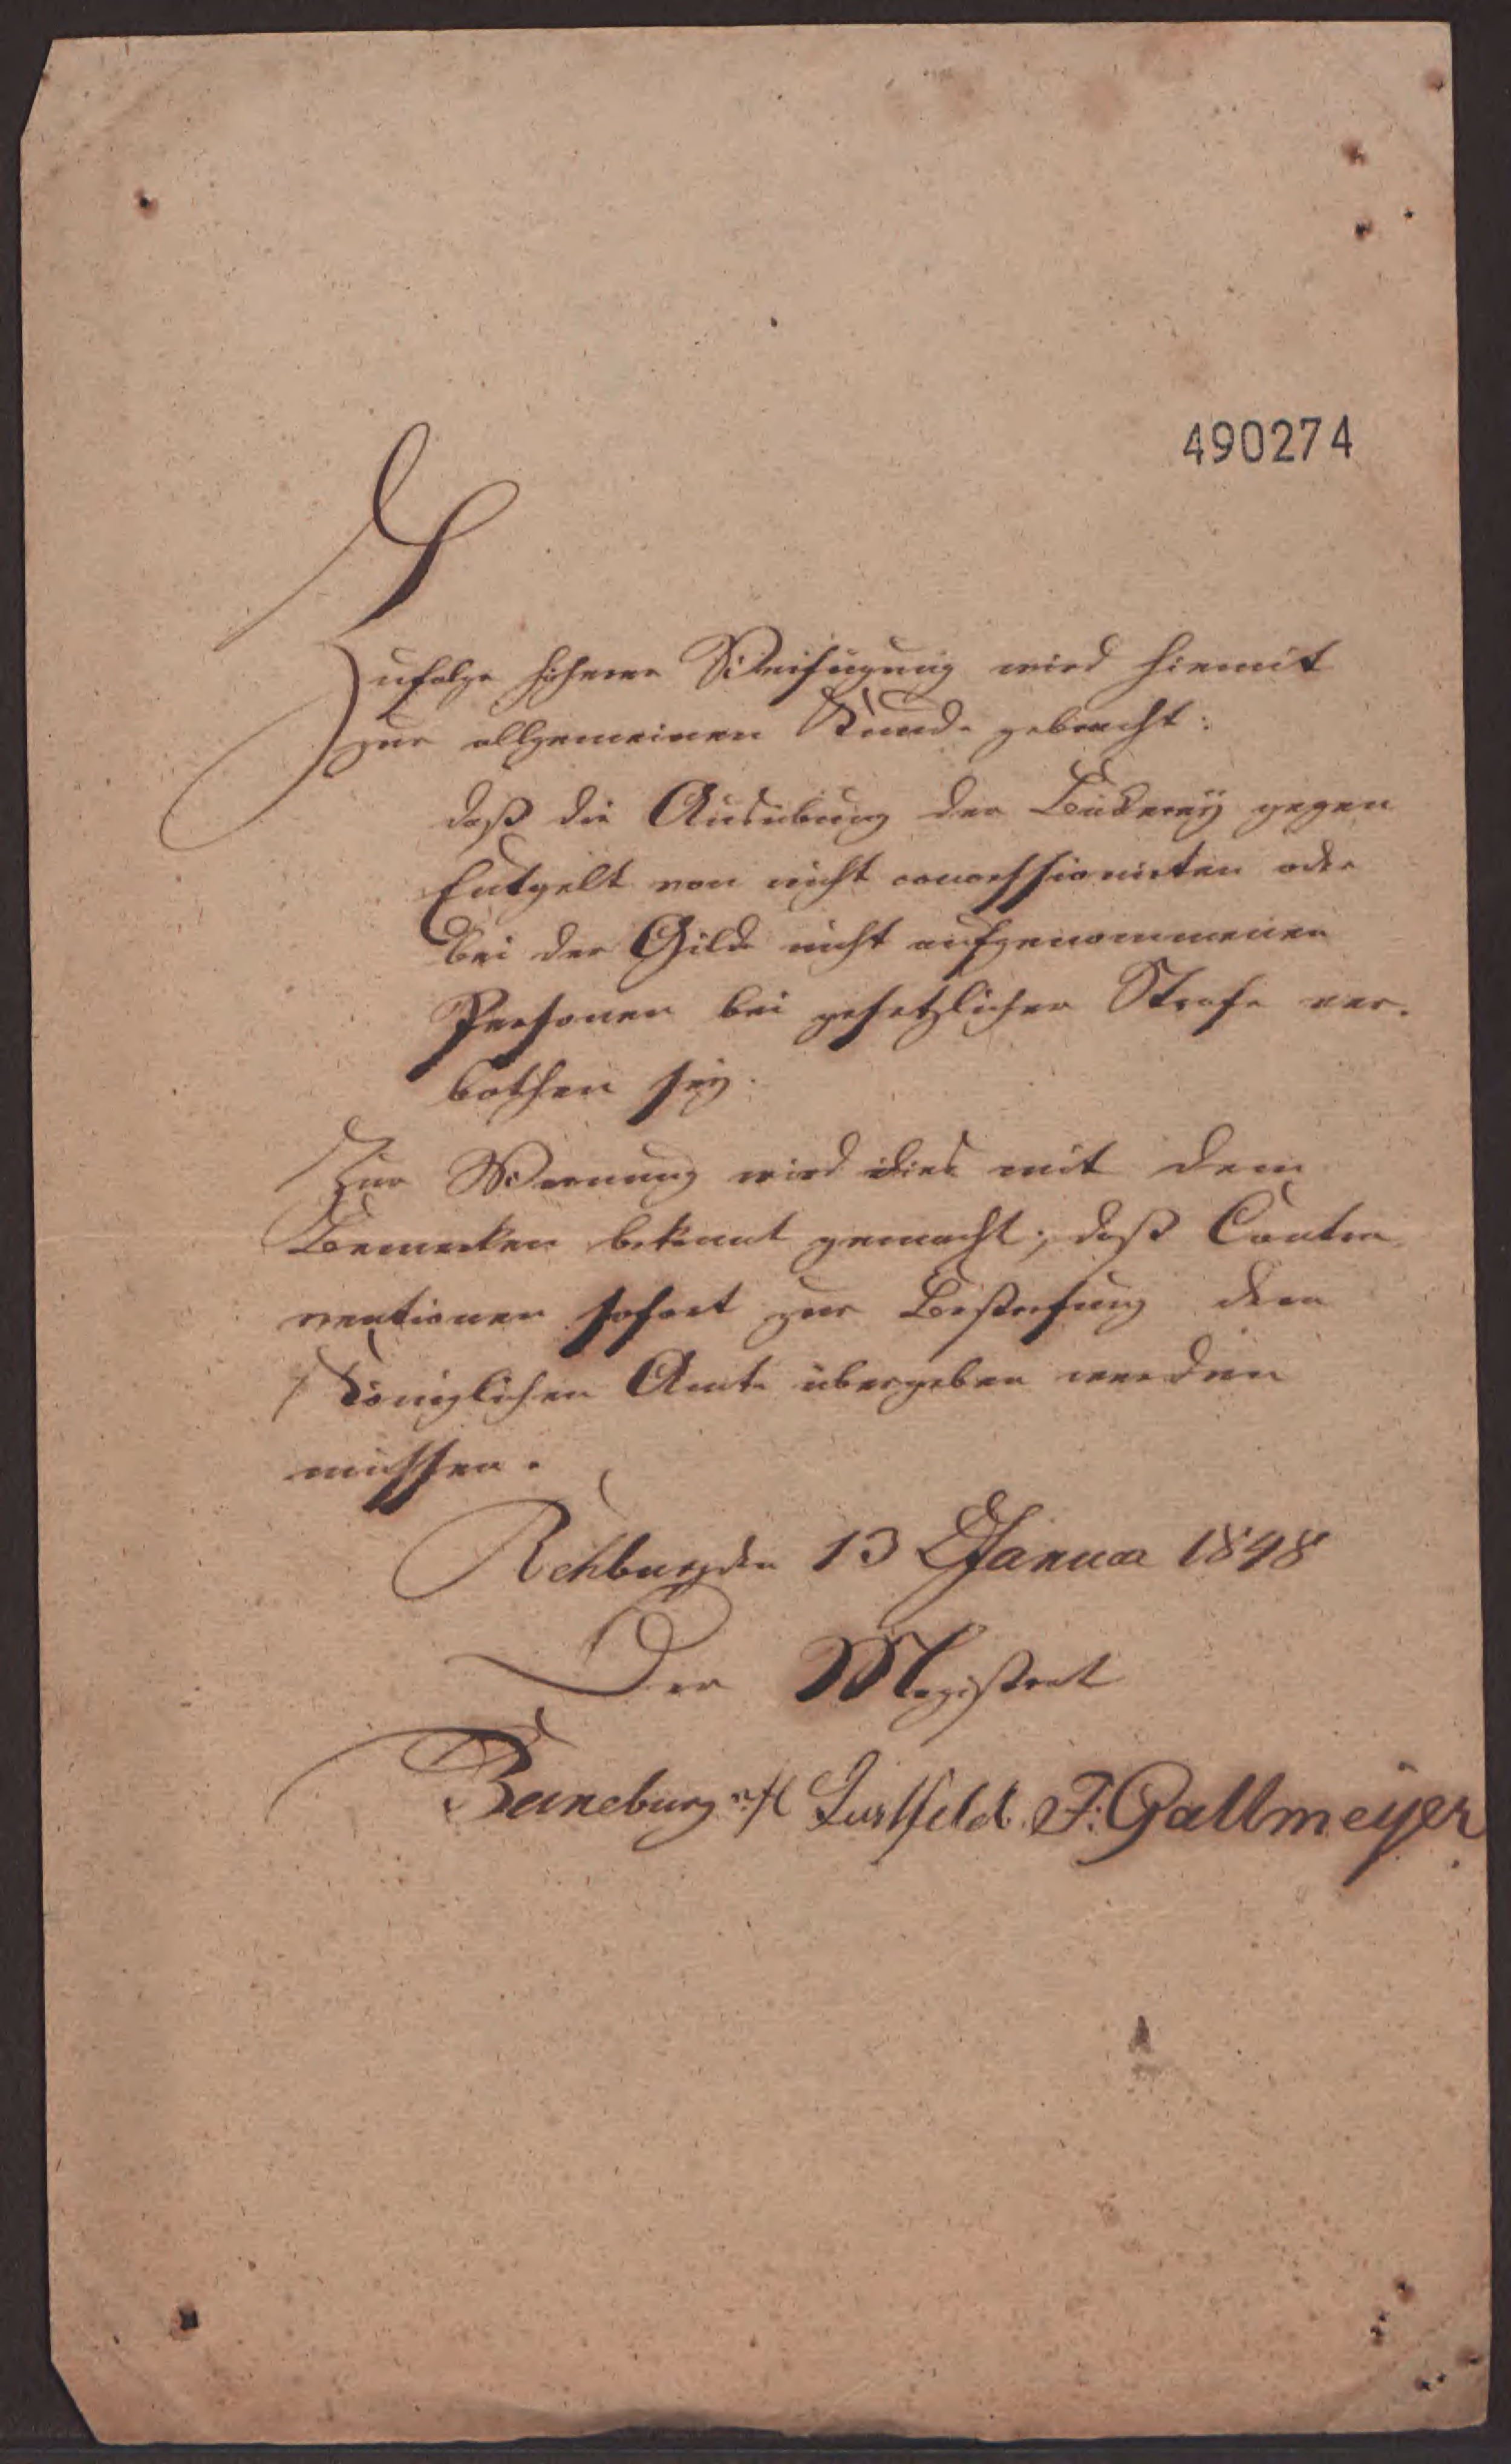 490274
Zufolge höherer Verfügung wird hiemit
zur allgemeinen Kunde gebracht:
daß die Ausübung der Bäckerey gegen
Entgelt von nicht concessionirten oder
bei der Gilde nicht aufgenommenen
Personen bei gesetzlicher Strafe ver-
bothen sey.
Zur Warnung wird dies mit dem
Bemerken bekannt gemacht, daß Contra-
ventionen sofort zur Bestrafung dem
Königlichen Amte übergeben werden
müssen.
Rehburg den 13 Januar 1848
Der Magistrat
Lustfeld F. Gallmeyer